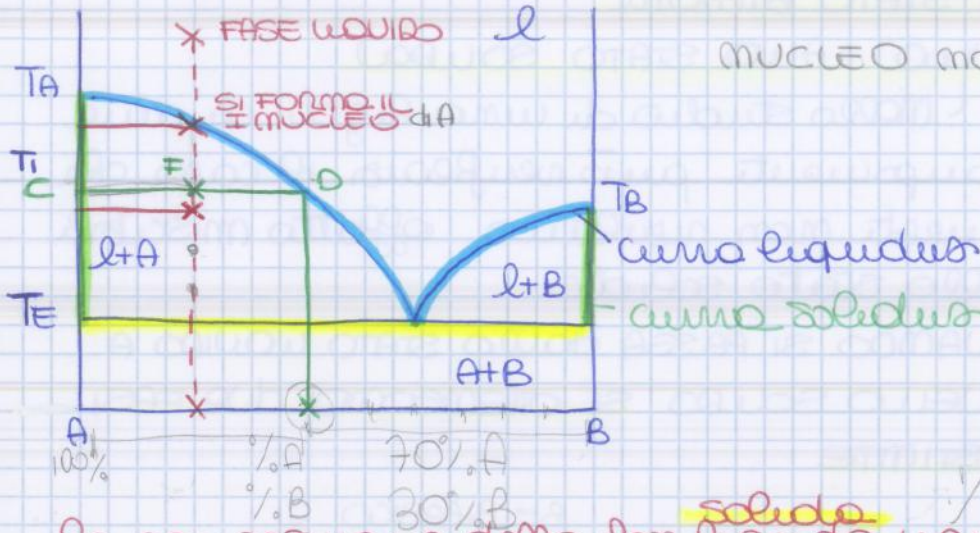 FASE LIQUIDO
l
NUCLEO
TA
SI FORMO IL
I NUCLEO di A
T1
C
F
D
TB
l+A
curva liquidus
l+B
TE
curva solidus
A+B
A
B
100%
%A
70% A
%B
30% B
solida